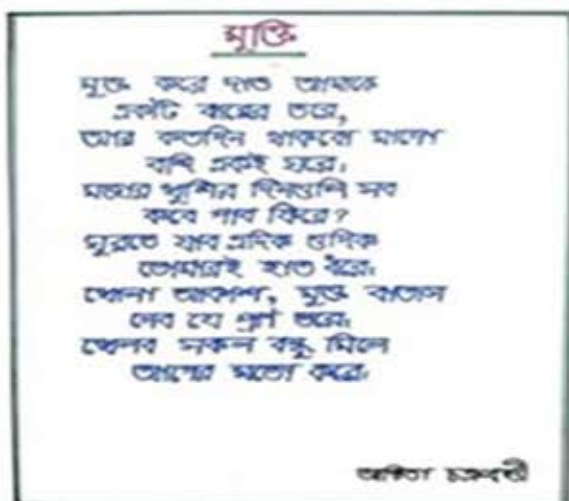 মুক্তি
মুক্ত করে দাও আমাকে
একটি বারের তরে,
আর কতদিন থাকবো মাগো
বন্দি একই ঘরে।
মজার খুশির দিনগুলি সব
কবে পাব ফিরে?
ঘুরতে যাব এদিক ওদিক
তোমারই হাত ধরে।
খোলা আকাশ, মুক্ত বাতাস
নেব যে প্রাণ ভরে।
খেলব সকল বন্ধু মিলে
আগের মতো করে।
চক্রবর্তী